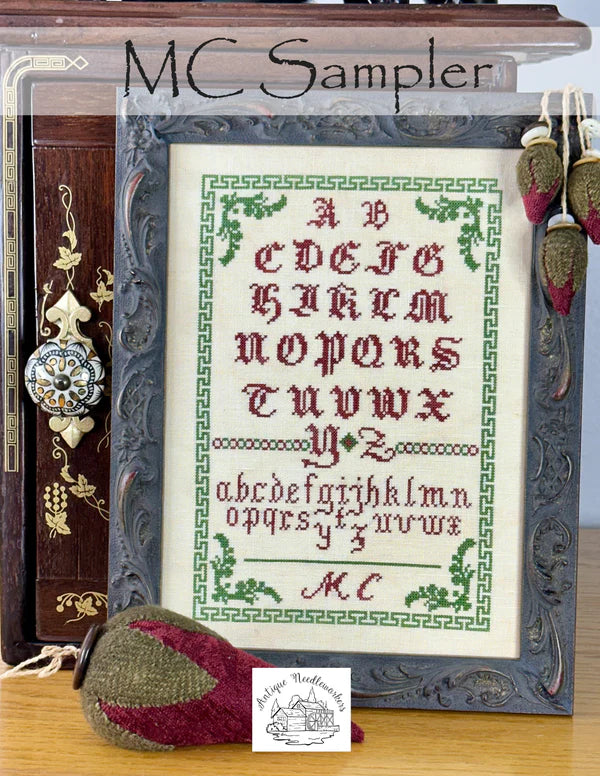 MC Sampler
A B
C D E F G
H I K L M
N O P Q R S
T U V W X
Y Z
abcdefgijhklmn
opqrstuvwx
y z
MC
Antique Needleworkers